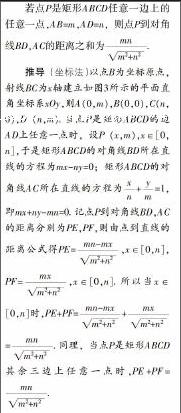 若点P是矩形ABCD任意一边上的
任意一点,AB=m,AD=n, 则点P到对角
线BD,AC的距离之和为 mn/√(m²+n²).
推导 (坐标法)以点B为坐标原点,
射线BC为x轴建立如图3所示的平面直
角坐标系xOy,则A(0,m),B(0,0),C(n,
0),D(n,m). 当点P是矩形ABCD的边
AD上任意一点时, 设P(x,m),x∈[0,
n],于是矩形ABCD的对角线BD所在直
线的方程为mx-ny=0; 矩形ABCD的对
角线AC所在直线的方程为 x/n + y/m =1,
即mx+ny-mn=0. 记点P到对角线BD,AC
的距离分别为PE,PF,则由点到直线的
距离公式得PE= (mn-mx)/√(m²+n²) ,x∈[0,n],
PF= mx/√(m²+n²) ,x∈[0,n]. 所以当x∈
[0,n]时,PE+PF= (mn-mx)/√(m²+n²) + mx/√(m²+n²)
= mn/√(m²+n²) . 同理, 当点P是矩形ABCD
其余三边上任意一点时,PE+PF=
mn/√(m²+n²) .